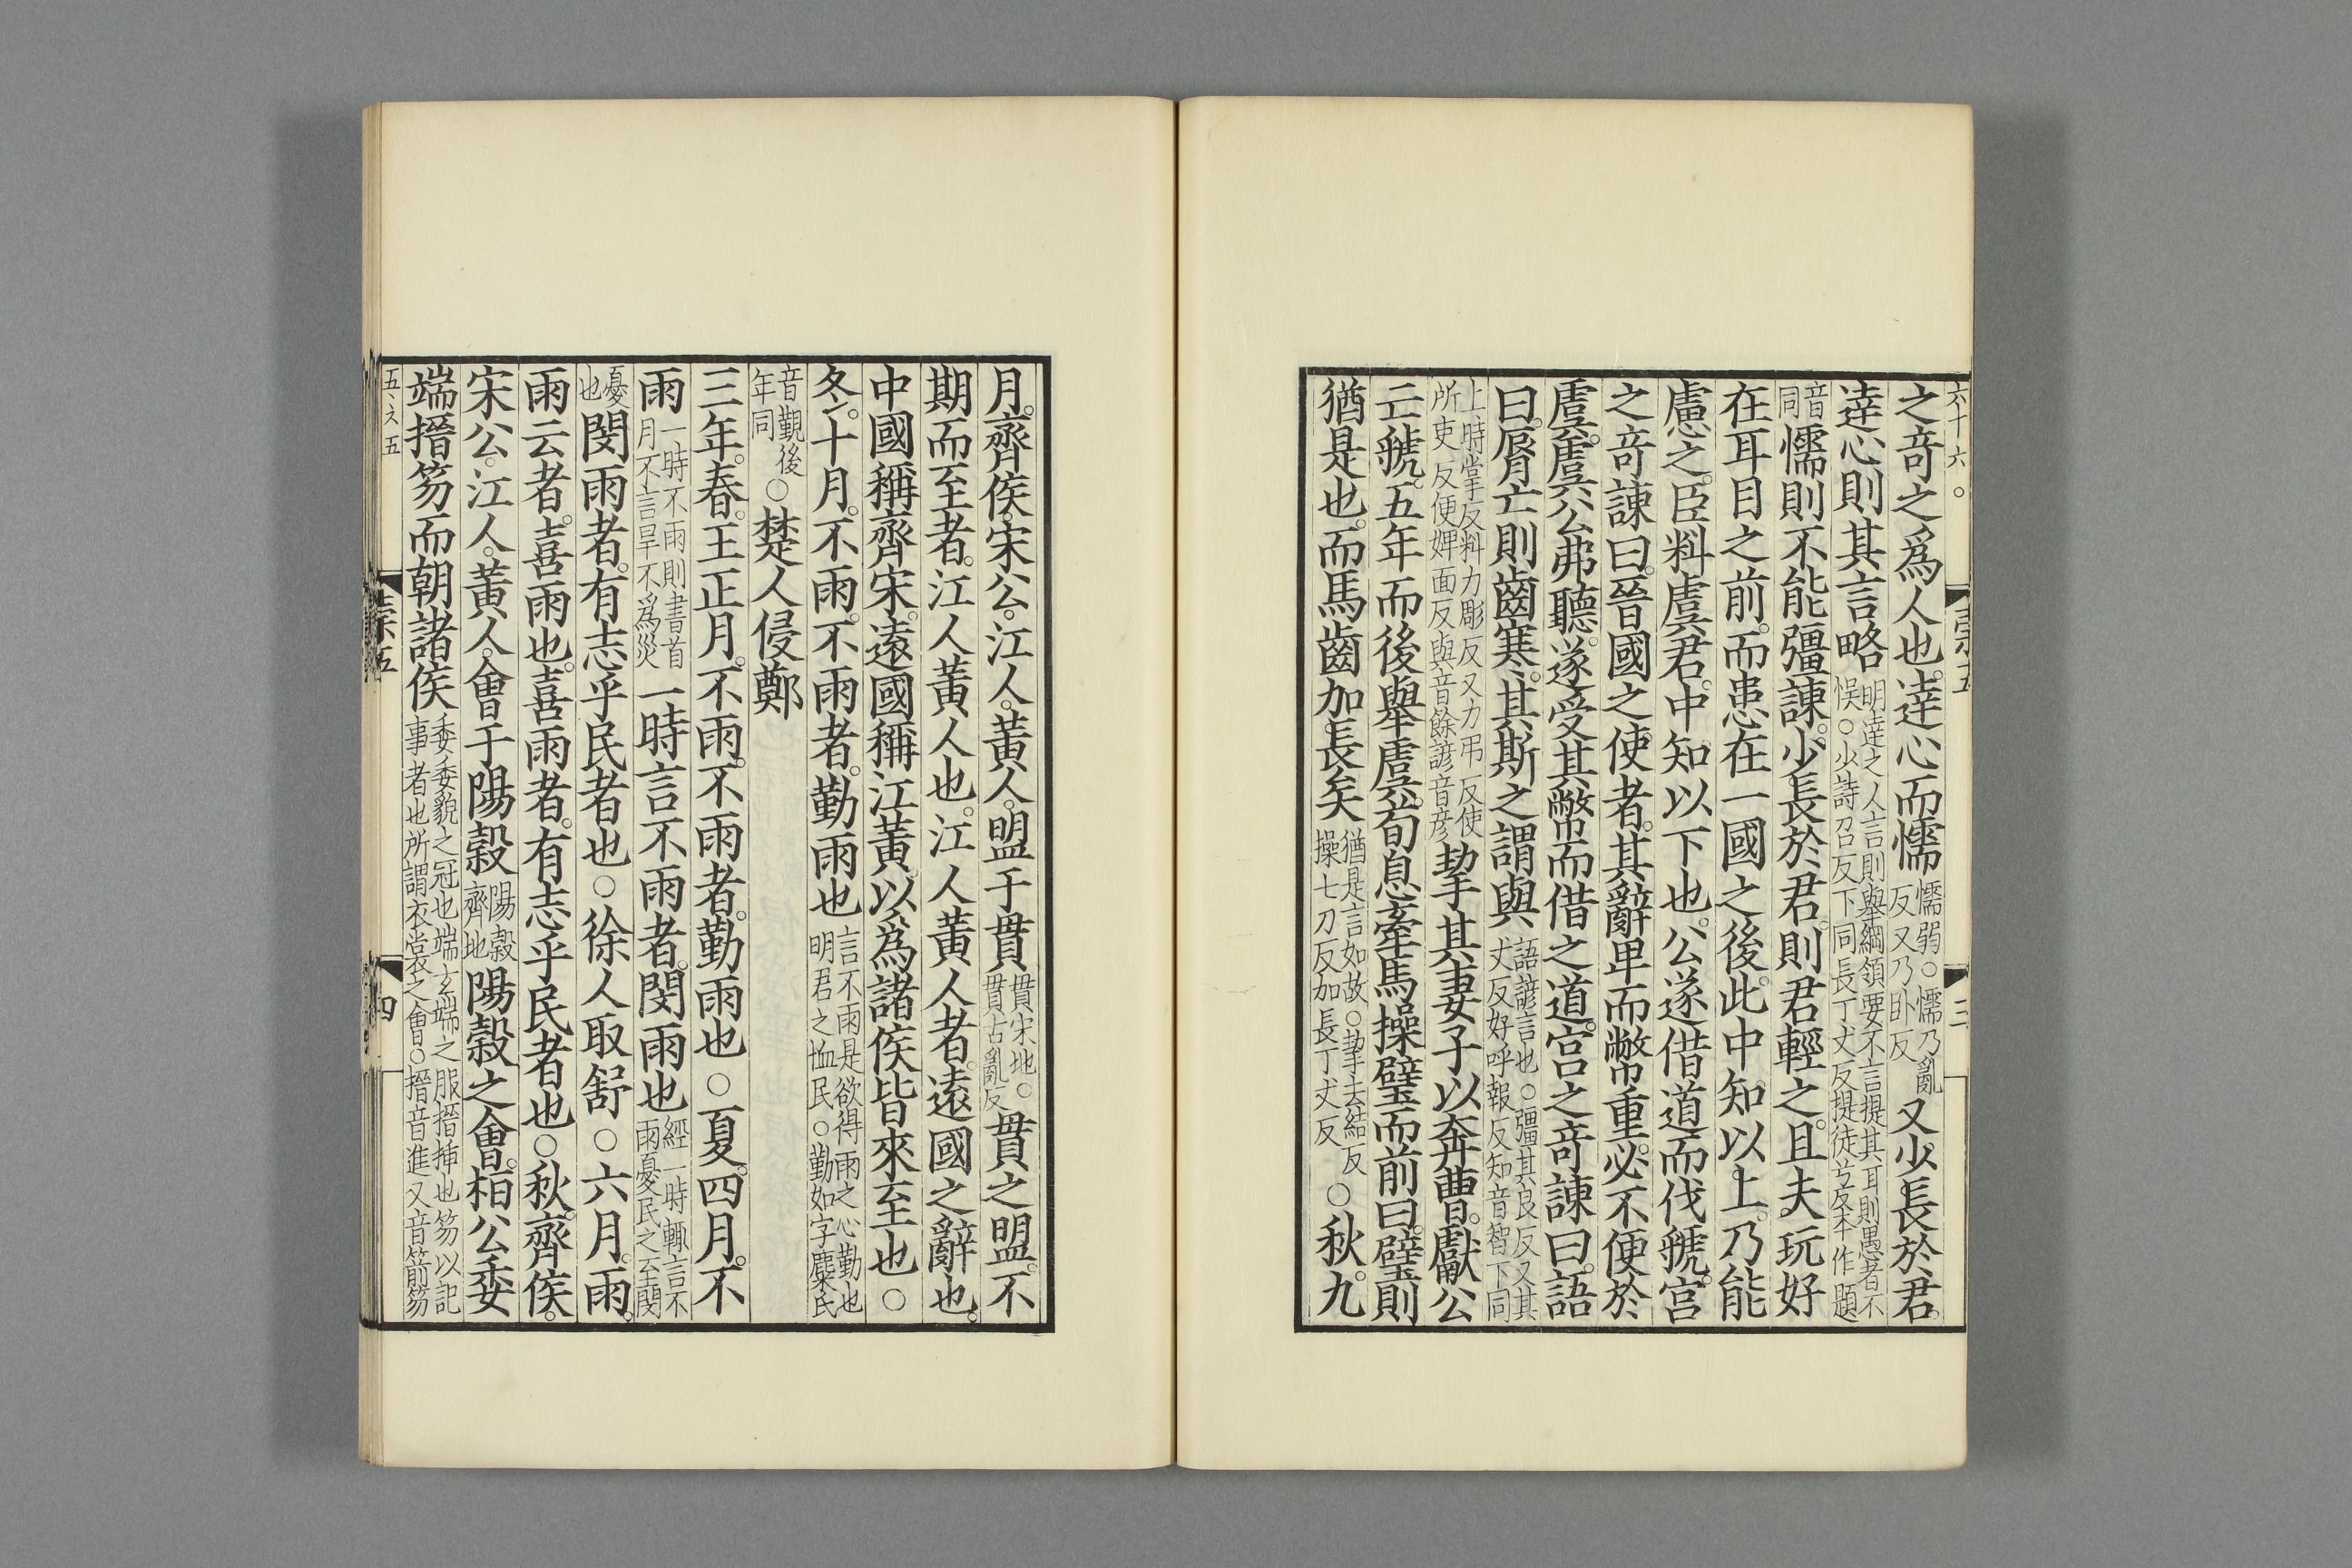 之竒之爲人也。達心而懦懦弱○懦乃亂反又乃卧反又少長於君。
達心則其言略明達之人言則舉綱領要不言提其耳則愚者不悞○少詩召反下同長丁丈反提徒兮反本作題
音同懦則不能彊諫。少長於君。則君輕之。且夫玩好
在耳目之前。而患在一國之後。此中知以上。乃能
慮之。臣料虞君。中知以下也。公遂借道而伐虢。宫
之竒諫曰。晉國之使者。其辭卑而幣重。必不便於
虞。虞公弗聽。遂受其幣而借之道。宫之竒諫曰。語
曰。脣亡則齒寒。其斯之謂與語諺言也○彊其良反又其丈反好呼報反知音智下同
上時掌反料力彫反又力弔反使所吏反便婢面反與音餘諺音彦挈其妻子以奔曹。獻公
亡虢。五年而後舉虞。荀息牽馬操璧而前曰。璧則
猶是也。而馬齒加長矣猶是言如故○挈去結反操七刀反加長丁丈反○秋。九
六十六○
三
月。齊侯。宋公。江人。黄人。盟于貫貫宋地○貫古亂反貫之盟。不
期而至者。江人黄人也。江人黄人者。遠國之辭也。
中國稱齊宋。遠國稱江黄。以爲諸侯皆來至也。○
冬。十月。不雨。不雨者。勤雨也言不雨是欲得雨之心勤也明君之恤民○勤如字麋氏
音觀後年同○楚人侵鄭
三年。春。王正月。不雨。不雨者。勤雨也○夏。四月。不
雨一時不雨則書首月不言旱不爲災一時言不雨者。閔雨也經一時輒言不雨憂民之至閔
憂也閔雨者。有志乎民者也○徐人取舒○六月。雨。
雨云者。喜雨也。喜雨者。有志乎民者也○秋。齊侯。
宋公。江人。黄人。會于陽榖陽榖齊地陽榖之會。桓公委
端搢笏而朝諸侯委委貌之冠也端玄端之服搢揷也笏以記事者也所謂衣裳之會○搢音進又音箭笏
四